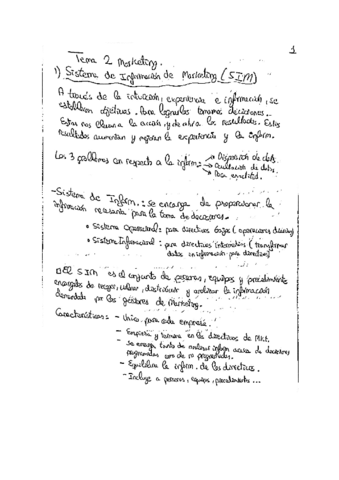 1
Tema 2 Marketing.
1) Sistema de Información de Marketing (SIM)
A través de la intuición, experiencia e información, se
establecen objetivos. Para lograrlos tomamos decisiones.
Estas nos llevan a la acción y de ahí a los resultados. Estos
resultados aumentan y mejoran la experiencia y la inform.
Los 3 problemas con respecto a la inform: → Disposición de dats.
→ de datos.
→ Poca
- Sistema de Inform.: se encarga de proporcionar la
información necesaria para la toma de decisiones.
• Sistema Operacional: para directivos bajos (operaciones diarias)
• Sistema Informacional: para directivos intermedios (transformar
datos en información para directivos)
El SIM es el conjunto de personas, equipos y procedimientos
encargados de recoger, , distribuir y analizar la información
demandada por los gestores de Marketing.
Características: - Único para cada empresa.
- Empieza y termina en los directivos de Mkt.
- Se encarga tanto de analizar inform acerca de decisiones
programadas como de no programadas.
- Equilibra la inform. de los directivos.
- Incluye a personas, equipos, procedimientos ...